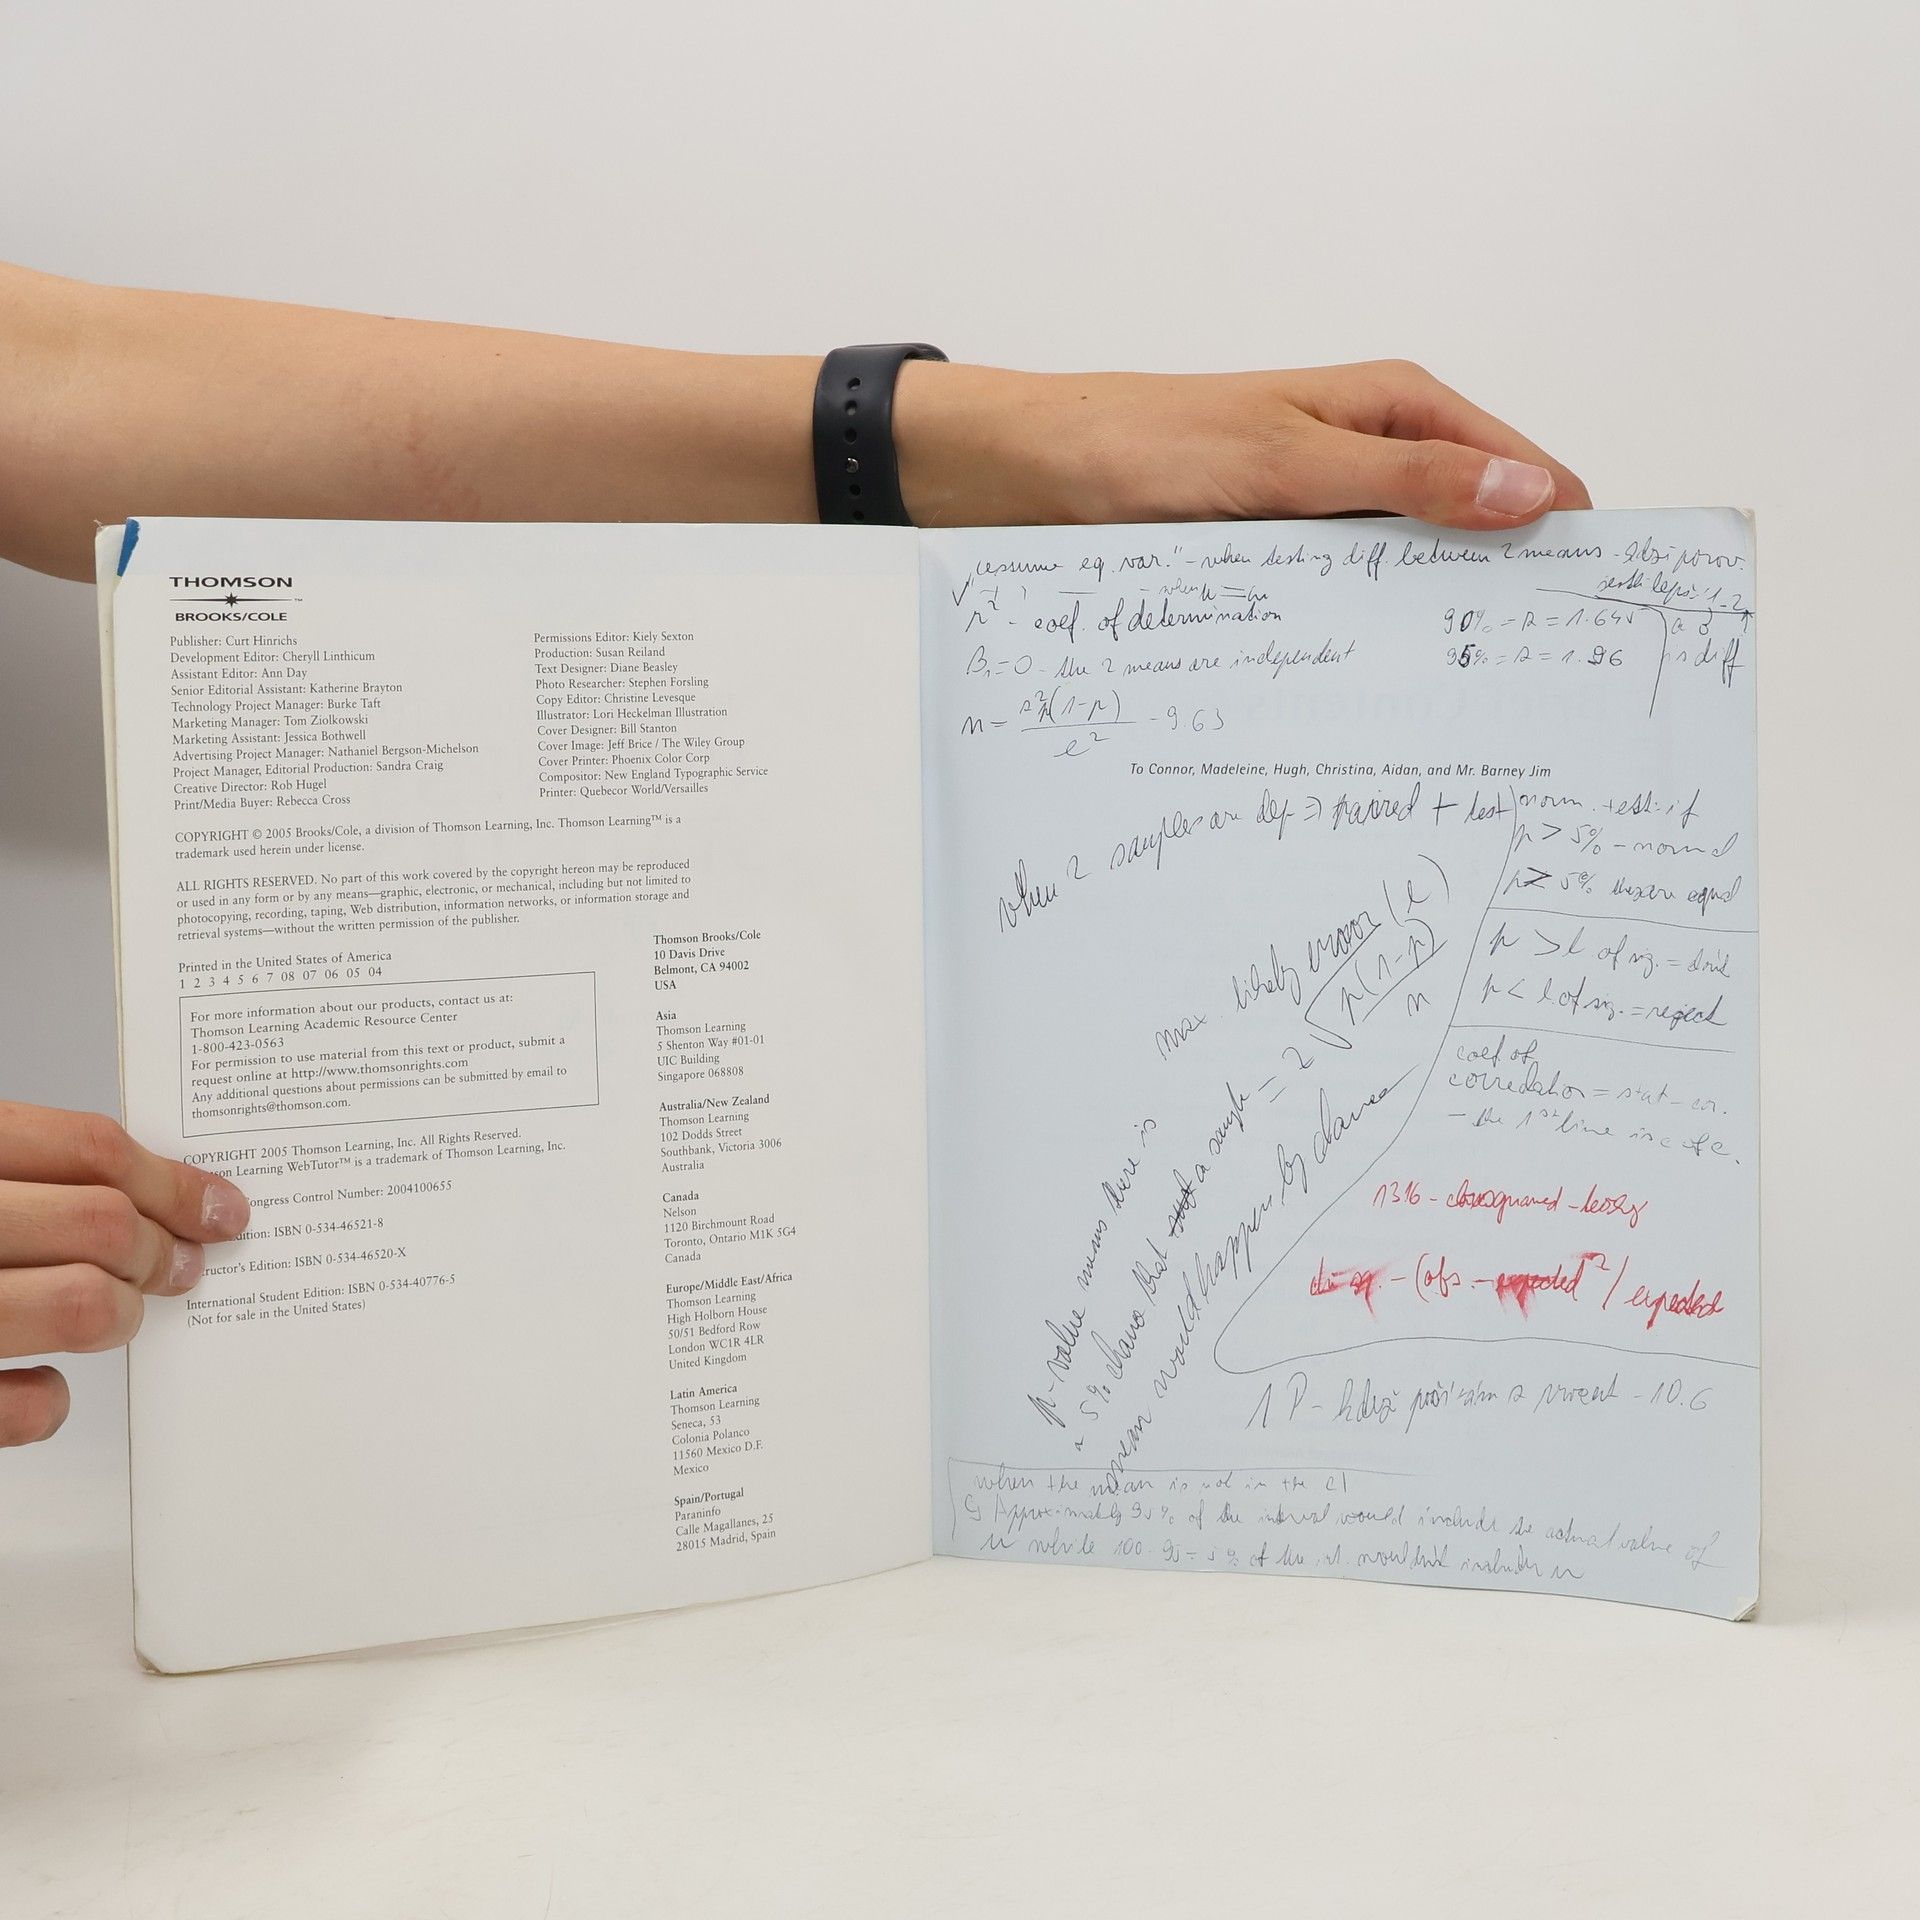 THOMSON
™
BROOKS/COLE
Publisher: Curt Hinrichs
Development Editor: Cheryll Linthicum
Assistant Editor: Ann Day
Senior Editorial Assistant: Katherine Brayton
Technology Project Manager: Burke Taft
Marketing Manager: Tom Ziolkowski
Marketing Assistant: Jessica Bothwell
Advertising Project Manager: Nathaniel Bergson-Michelson
Project Manager, Editorial Production: Sandra Craig
Creative Director: Rob Hugel
Print/Media Buyer: Rebecca Cross
Permissions Editor: Kiely Sexton
Production: Susan Reiland
Text Designer: Diane Beasley
Photo Researcher: Stephen Forsling
Copy Editor: Christine Levesque
Illustrator: Lori Heckelman Illustration
Cover Designer: Bill Stanton
Cover Image: Jeff Brice / The Wiley Group
Cover Printer: Phoenix Color Corp
Compositor: New England Typographic Service
Printer: Quebecor World/Versailles
COPYRIGHT © 2005 Brooks/Cole, a division of Thomson Learning, Inc. Thomson Learning™ is a
trademark used herein under license.
ALL RIGHTS RESERVED. No part of this work covered by the copyright hereon may be reproduced
or used in any form or by any means—graphic, electronic, or mechanical, including but not limited to
photocopying, recording, taping, Web distribution, information networks, or information storage and
retrieval systems—without the written permission of the publisher.
Printed in the United States of America
1 2 3 4 5 6 7 08 07 06 05 04
For more information about our products, contact us at:
Thomson Learning Academic Resource Center
1-800-423-0563
For permission to use material from this text or product, submit a
request online at http://www.thomsonrights.com
Any additional questions about permissions can be submitted by email to
thomsonrights@thomson.com.
COPYRIGHT 2005 Thomson Learning, Inc. All Rights Reserved.
Learning WebTutor™ is a trademark of Thomson Learning, Inc.
Control Number: 2004100655
ISBN 0-534-46521-8
Edition: ISBN 0-534-46520-X
International Student Edition: ISBN 0-534-40776-5
(Not for sale in the United States)
Thomson Brooks/Cole
10 Davis Drive
Belmont, CA 94002
USA
Asia
Thomson Learning
5 Shenton Way #01-01
UIC Building
Singapore 068808
Australia/New Zealand
Thomson Learning
102 Dodds Street
Southbank, Victoria 3006
Australia
Canada
Nelson
1120 Birchmount Road
Toronto, Ontario M1K 5G4
Canada
Europe/Middle East/Africa
Thomson Learning
High Holborn House
50/51 Bedford Row
London WC1R 4LR
United Kingdom
Latin America
Thomson Learning
Seneca, 53
Colonia Polanco
11560 Mexico D.F.
Mexico
Spain/Portugal
Paraninfo
Calle Magallanes, 25
28015 Madrid, Spain
„assume eq. var." - when testing diff. between 2 means
r² - coef. of determination
90% = z = 1.645
95% = z = 1.96
is diff
B₁ = 0 - the 2 means are independent
n = z²p(1-p) / e² - 9.63
To Connor, Madeleine, Hugh, Christina, Aidan, and Mr. Barney Jim
when 2 samples are dep => paired t test
norm. test: if
p > 5% - normal
5% they are equal
p > l of sig. = don't
p < l of sig. = reject
max. likely error (e)
= 2 √ p(1-p) / n
coef. of
correlation = stat - cor.
- the 1st line is c of c.
p-value means there is
a 5% chance that a sample
mean would happen by chance
1316 -
chi-sq. - (obs. - expected ² / expected
1 P - když 10.6
when the mean is not in the CI
Approximately 95% of the interval would include the actual value of
μ while 100 - 95 = 5% of the int. wouldn't include μ